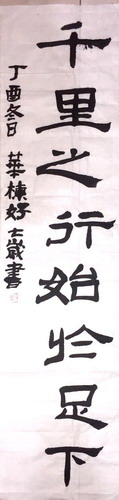 千里之行始於足下
丁酉冬日 華棟好 七歲書